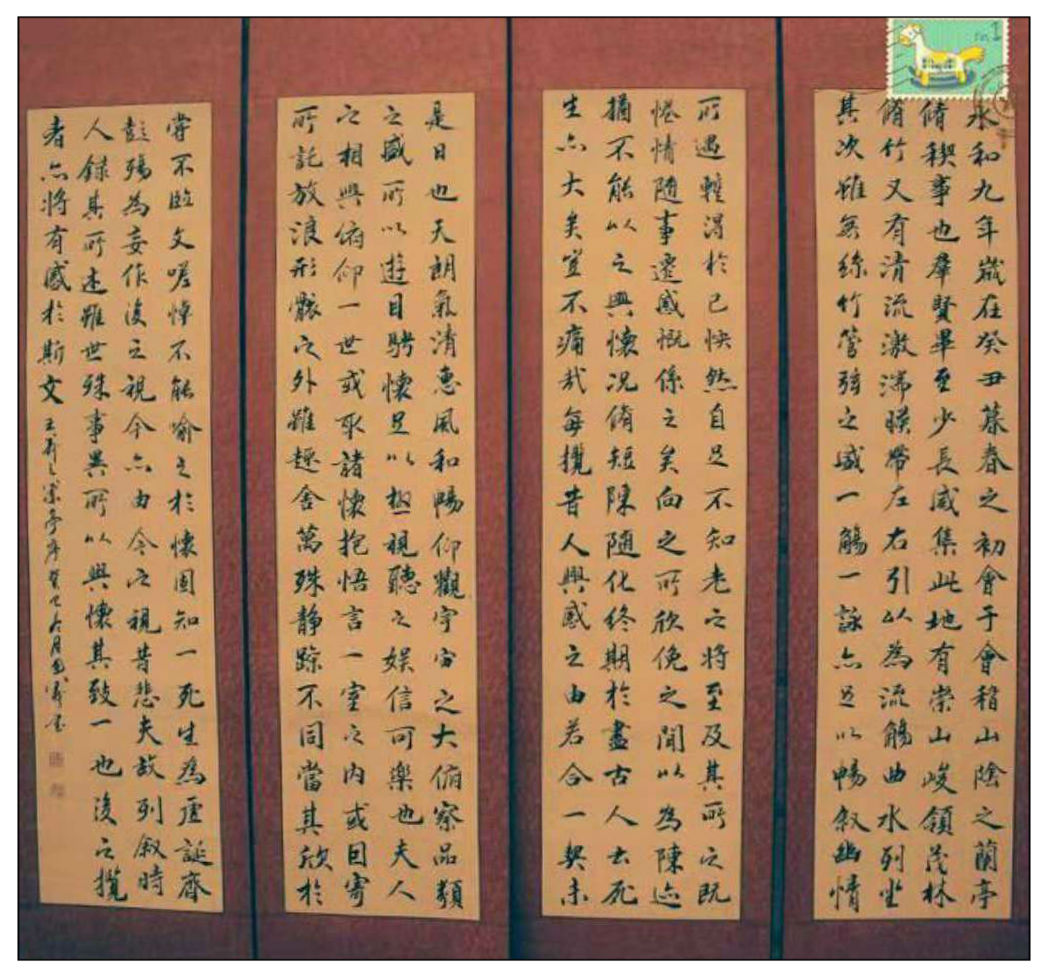 永和九年歲在癸丑暮春之初會于會稽山陰之蘭亭
脩稧事也羣賢畢至少長咸集此地有崇山峻領茂林
脩竹又有清流激湍暎帶左右引以為流觴曲水列坐
其次雖無絲竹管弦之盛一觴一詠亦足以暢叙幽情
所遇蹔得於己怏然自足不知老之將至及其所之既
惓情隨事遷感慨係之矣向之所欣俛之間以為陳迹
猶不能以之興懷况脩短陳隨化終期於盡古人云死
生亦大矣豈不痛哉每攬昔人興感之由若合一契未
是日也天朗氣清惠風和暢仰觀宇宙之大俯察品類
之盛所以遊目騁懷足以極視聽之娛信可樂也夫人
之相與俯仰一世或取諸懷抱悟言一室之内或因寄
所託放浪形骸之外雖趣舍萬殊静躁不同當其欣於
嘗不臨文嗟悼不能喻之於懷固知一死生為虛誕齊
彭殤為妄作後之視今亦由今之視昔悲夫故列叙時
人錄其所述雖世殊事異所以興懷其致一也後之攬
者亦將有感於斯文 王羲之蘭亭序癸巳